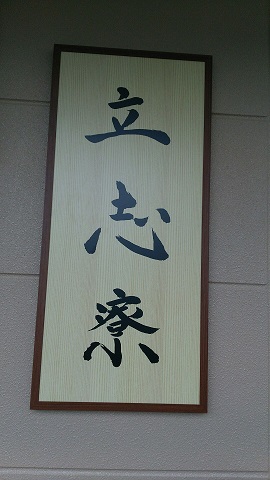 立志寮